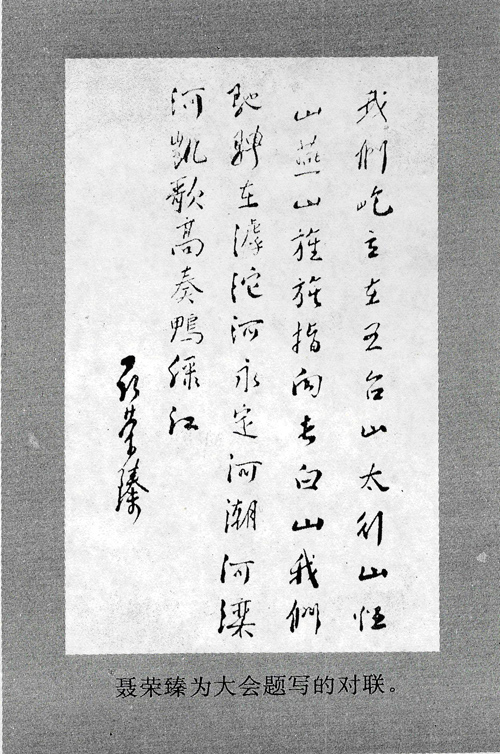 我們屹立在五台山太行山恒
山燕山旌旗指向長白山我們
馳騁在滹沱河永定河潮河灤
河凱歌高奏鴨綠江
聂荣臻
聂荣臻为大会题写的对联。